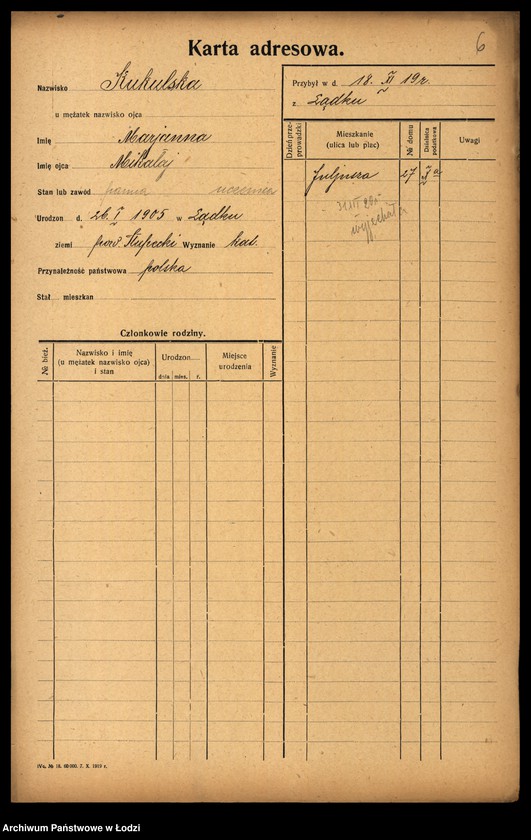 Karta adresowa.
6
Nazwisko Kukulska
u mężatek nazwisko ojca
Imię Marjanna
Imię ojca Mikołaj
Stan lub zawód panna uczenica
Urodzon d. 26. I 1905 w Lądku
ziemi pow. Słupecki Wyznanie kat.
Przynależność państwowa polska
Stał mieszkan
Przybył w d. 18. XI 19 r.
z Lądku
Dzień przeprowadzki
Mieszkanie
(ulica lub plac)
№ domu
Dzielnica podatkowa
Uwagi
Juljusza 27 X a
wyjechała
Członkowie rodziny.
№ bież.
Nazwisko i imię
(u mężatek nazwisko ojca)
i stan
Urodzon
dnia mies. r.
Miejsce
urodzenia
Wyznanie
IVa. № 18. 60 000. 7. X. 1919 r.
Archiwum Państwowe w Łodzi